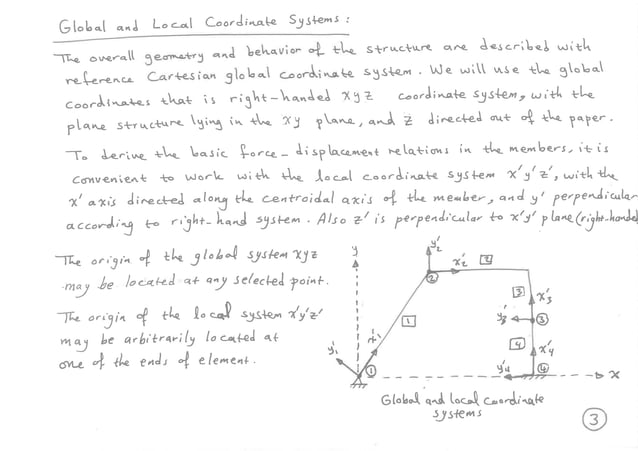 Global and Local Coordinate Systems :
The overall geometry and behavior of the structure are described with
reference Cartesian global coordinate system. We will use the global
coordinates that is right-handed xyz coordinate system, with the
plane structure lying in the xy plane, and z directed out of the paper.
To derive the basic force-displacement relations in the members, it is
convenient to work with the local coordinate system x'y'z', with the
x' axis directed along the centroidal axis of the member, and y' perpendicular
according to right-hand system. Also z' is perpendicular to x'y' plane (right-handed
The origin of the global system xyz
may be located at any selected point.
The origin of the local system x'y'z'
may be arbitrarily located at
one of the ends of element.
y
y'2
x'2
2
2
3
x'3
1
y'3
3
y'1
x'1
4
x'4
1
y'4
4
x
Global and local coordinate
systems
3